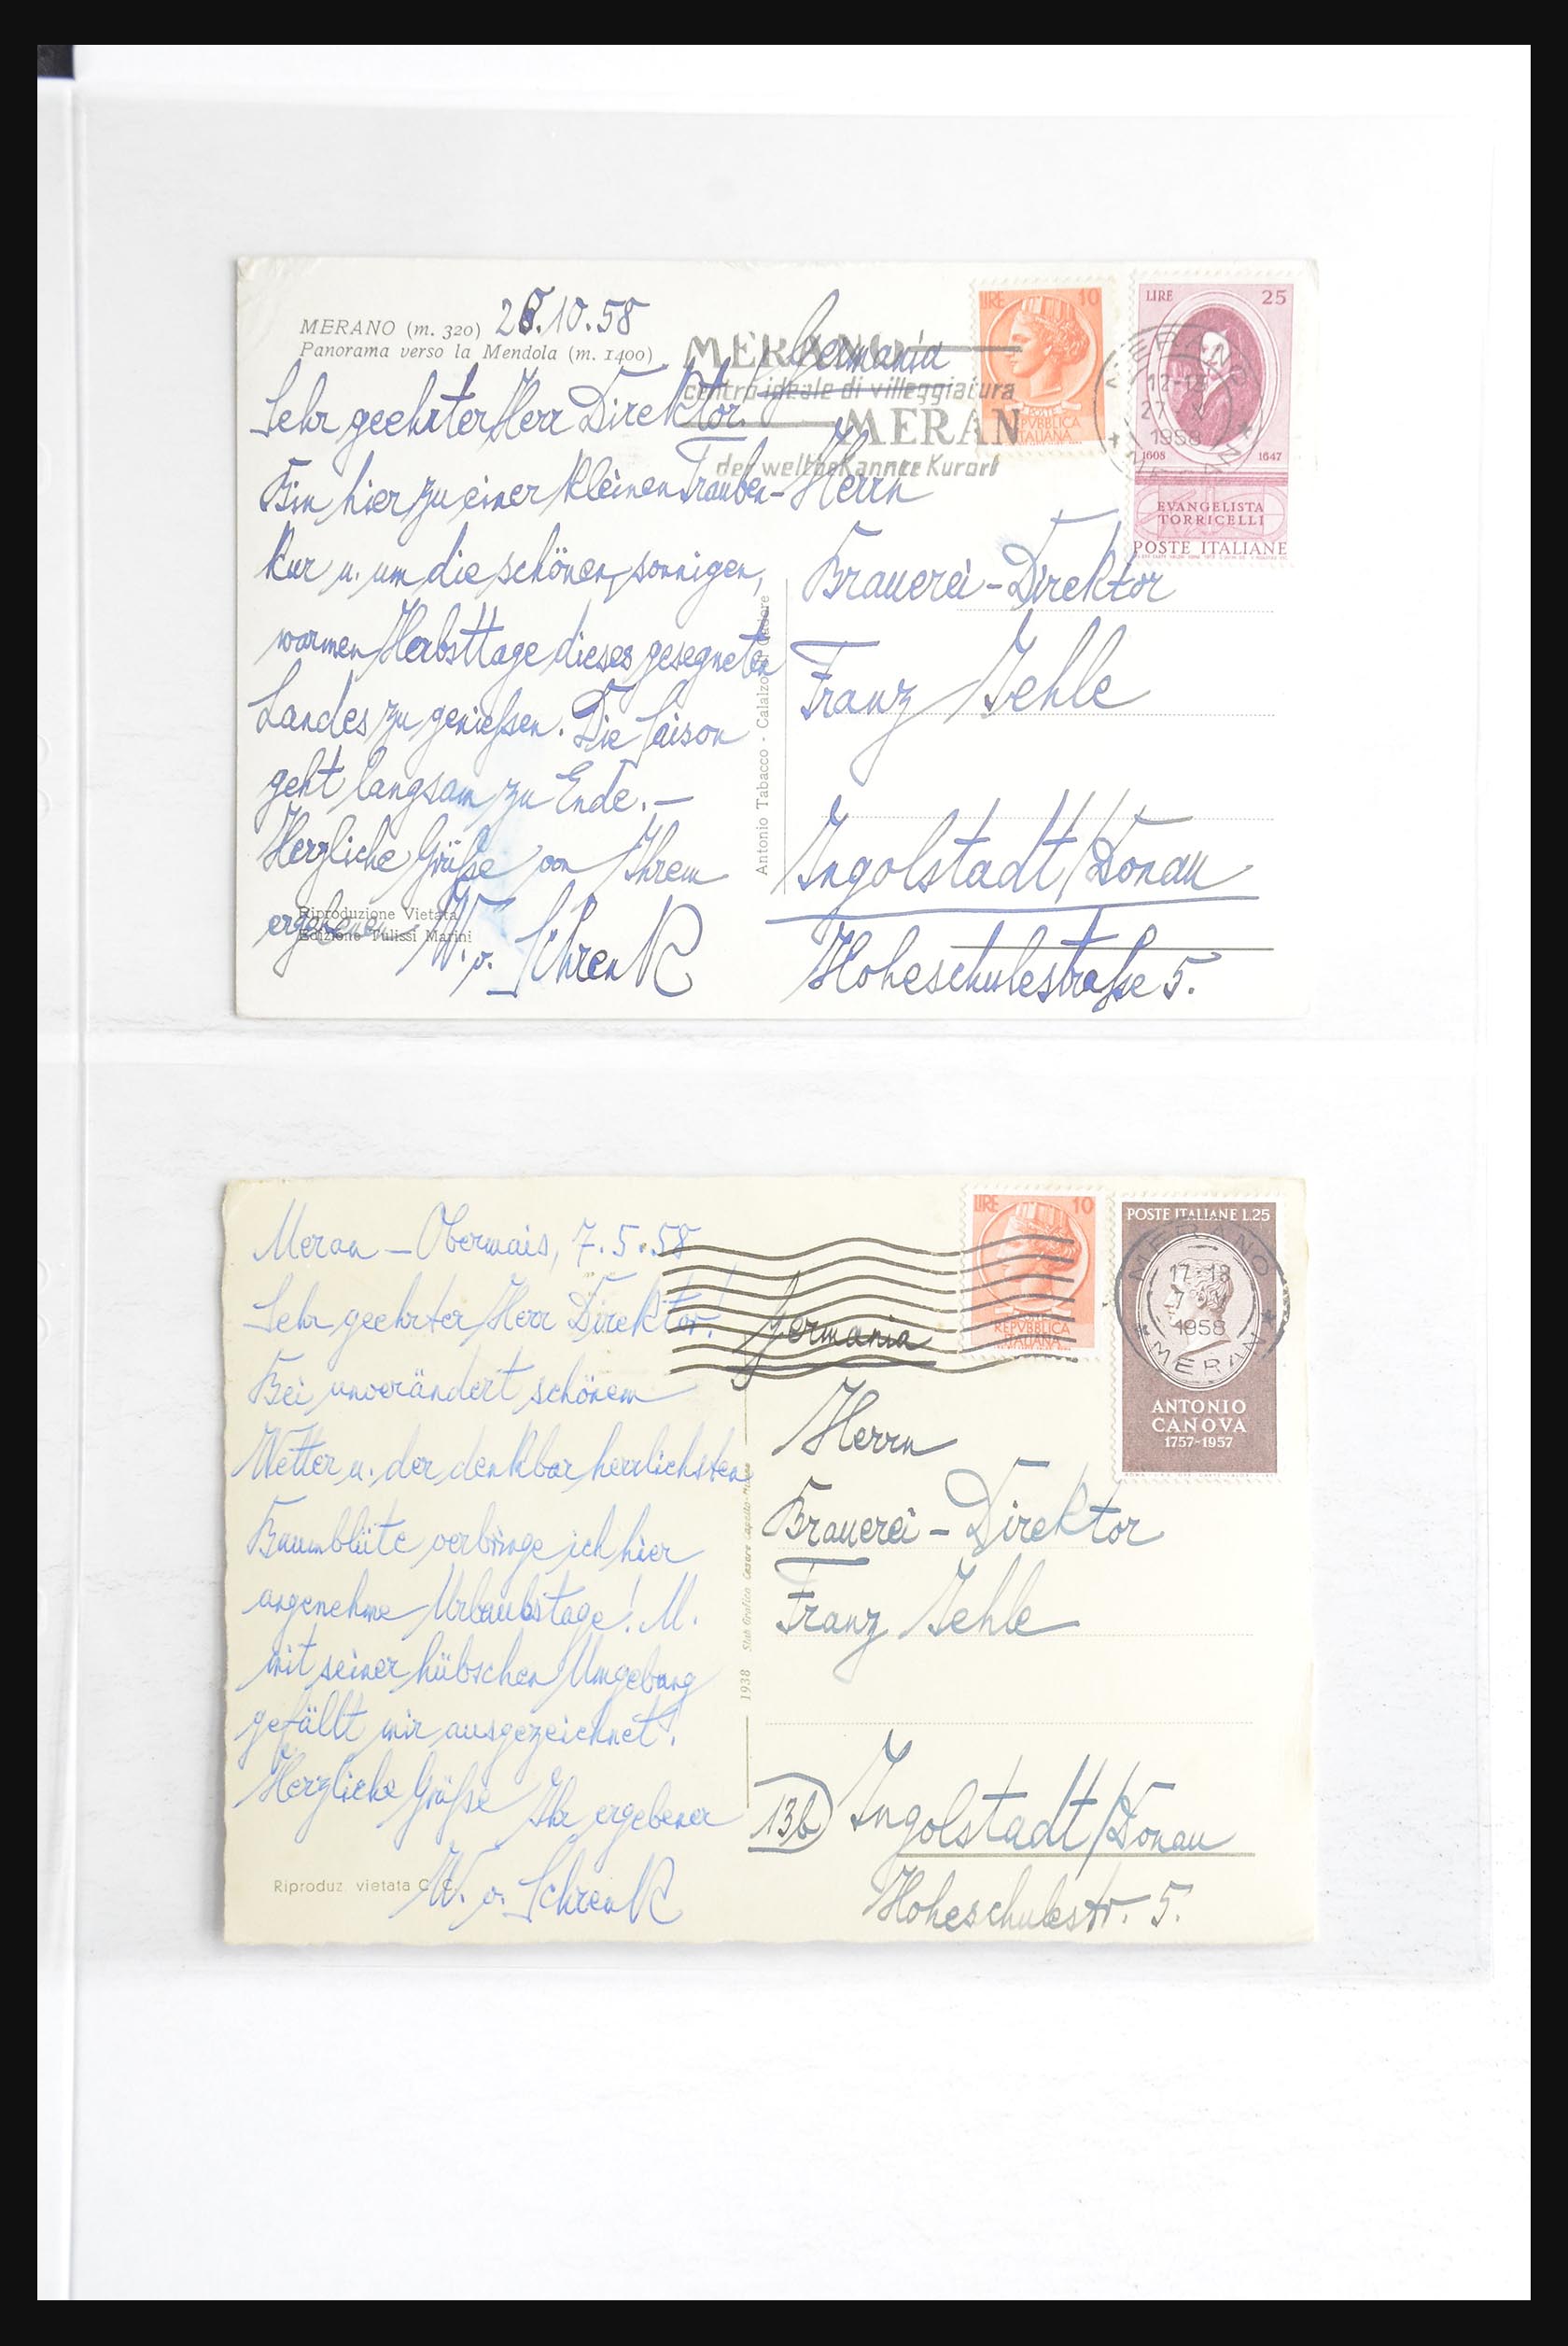 MERANO (m. 320) 28.10.58
Panorama verso la Mendola (m. 1400)
Sehr geehrter Herr Direktor.
Bin hier zu einer kleinen Trauben-
kur u. um die schönen, sonnigen,
warmen Herbsttage dieses gesegneten
Landes zu genießen. Die Saison
geht langsam zu Ende. —
Herzliche Grüße von Ihrem
ergebenen
W. v. Schrenk
Riproduzione Vietata
Edizione Tulissi Marini
Antonio Tabacco - Calalzo di Cadore
MERANO
centro ideale di villeggiatura
MERAN
der weltbekannte Kurort
Germania
LIRE 10
POSTE
REPVBBLICA
ITALIANA
LIRE 25
MERANO
17-18
27 X
1958
MERAN
1608 1647
EVANGELISTA
TORRICELLI
POSTE ITALIANE
Herrn
Brauerei-Direktor
Franz Jehle
Ingolstadt/Donau
Hoheschulestraße 5.
Meran – Obermais, 7.5.58
Sehr geehrter Herr Direktor!
Bei unverändert schönem
Wetter u. der denkbar herrlichsten
Baumblüte verbringe ich hier
angenehme Urlaubstage! M.
mit seiner hübschen Umgebung
gefällt mir ausgezeichnet!
Herzliche Grüße Ihr ergebener
W. v. Schrenk
Riproduz. vietata C. C.
1938 Stab Grafico Cesare
Germania
LIRE 10
POSTE
REPVBBLICA
ITALIANA
POSTE ITALIANE L.25
MERANO
17-18
1958
MERAN
ANTONIO
CANOVA
1757-1957
Herrn
Brauerei – Direktor
Franz Jehle
13b Ingolstadt/Donau
Hoheschulestr. 5.